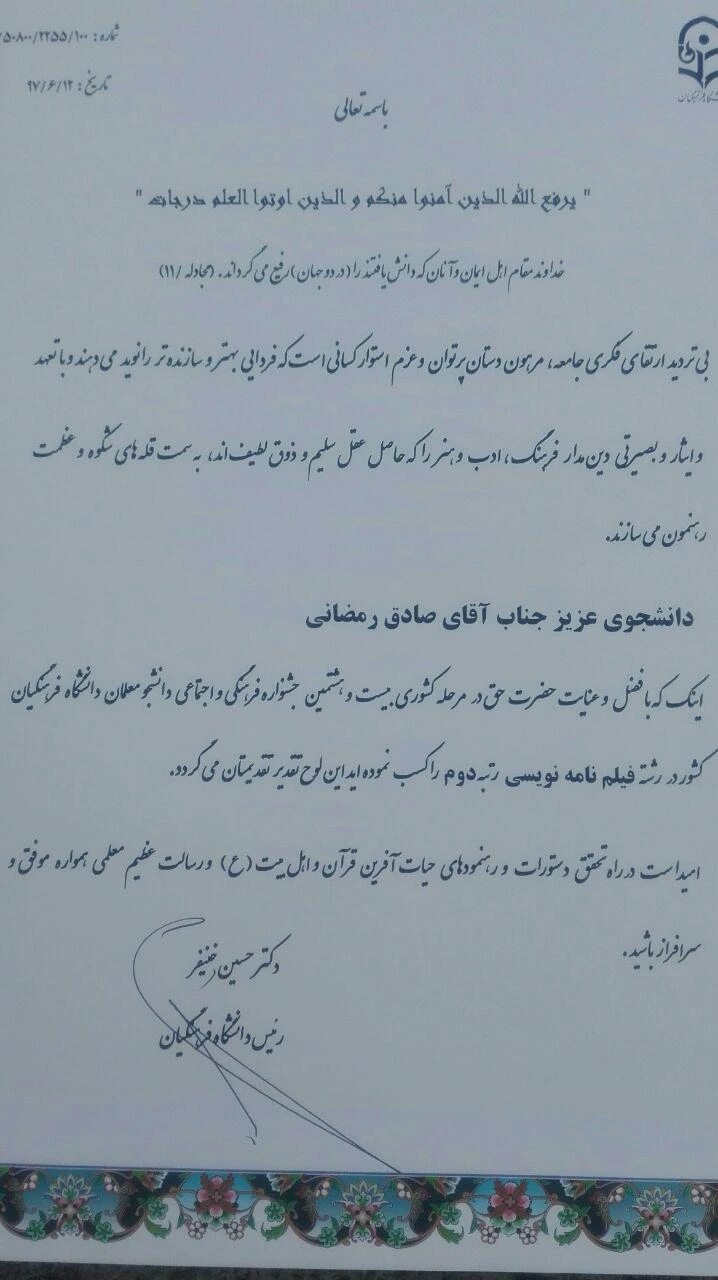 شماره: ۵۰۸۰۰/۲۲۵۵/۱۰۰/
تاریخ: ۹۷/۶/۱۲
باسمه تعالی
" یرفع الله الذین آمنوا منکم و الذین اوتوا العلم درجات "
خداوند مقام اهل ایمان و آنان که دانش یافتند را (در دو جهان) رفیع می گرداند. (مجادله /۱۱)
بی تردید ارتقای فکری جامعه، مرهون دستان پرتوان و عزم استوار کسانی است که فردایی بهتر و سازنده تر را نوید می دهند و با تعهد
و ایثار و بصیرتی دین مدار فرهنگ، ادب و هنر را که حاصل عقل سلیم و ذوق لطیف اند، به سمت قله های شکوه و عظمت
رهنمون می سازند.
دانشجوی عزیز جناب آقای صادق رمضانی
اینک که با فضل و عنایت حضرت حق در مرحله کشوری بیست و هشتمین جشنواره فرهنگی و اجتماعی دانشجو معلمان دانشگاه فرهنگیان
کشور در رشته فیلم نامه نویسی رتبه دوم را کسب نموده اید این لوح تقدیر تقدیمتان می گردد.
امید است در راه تحقق دستورات و رهنمودهای حیات آفرین قرآن و اهل بیت (ع) و رسالت عظیم معلمی همواره موفق و
سرافراز باشید.
دکتر حسین خنیفر
رئیس دانشگاه فرهنگیان